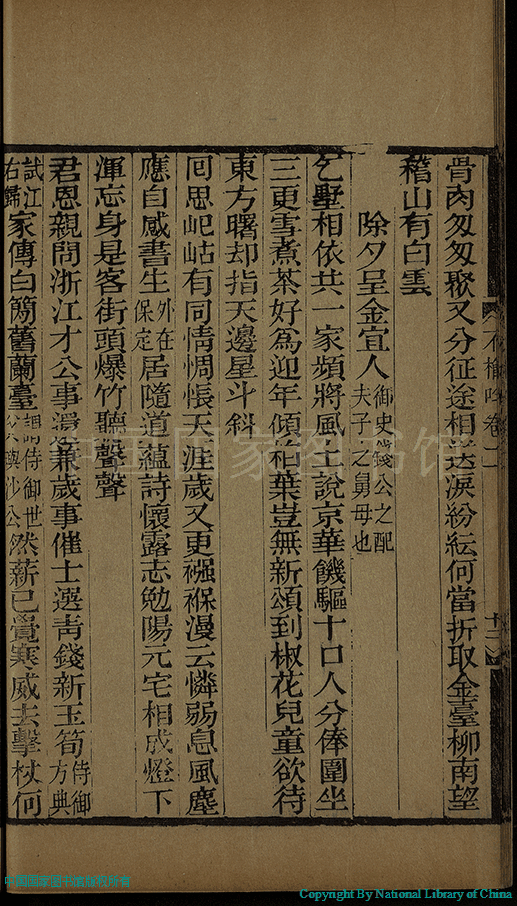 骨肉匆匆聚又分征途相送淚紛紜何當折取金臺柳南望
稽山有白雲
除夕呈金宜人御史錢公之配夫子之舅母也
乞墅相依共一家頻將風土說京華饑驅十口人分俸圍坐
三更雪煮茶好爲迎年傾柏葉豈無新頌到椒花兒童欲待
東方曙却指天邊星斗斜
囘思屺岵有同情惆悵天涯歲又更襁褓漫云憐弱息風塵
應自感書生外在保定居隨道蘊詩懷露志勉陽元宅相成燈下
渾忘身是客街頭爆竹聽聲聲
君恩親問浙江才公事還兼歲事催士選靑錢新玉筍侍御方典
試江右歸家傳白簡舊蘭臺謂侍御世公與沙公然薪已覺寒威去擊杖何
不櫛吟卷二
十二
中国国家图书馆
中国国家图书馆版权所有
Copyright By National Library of China